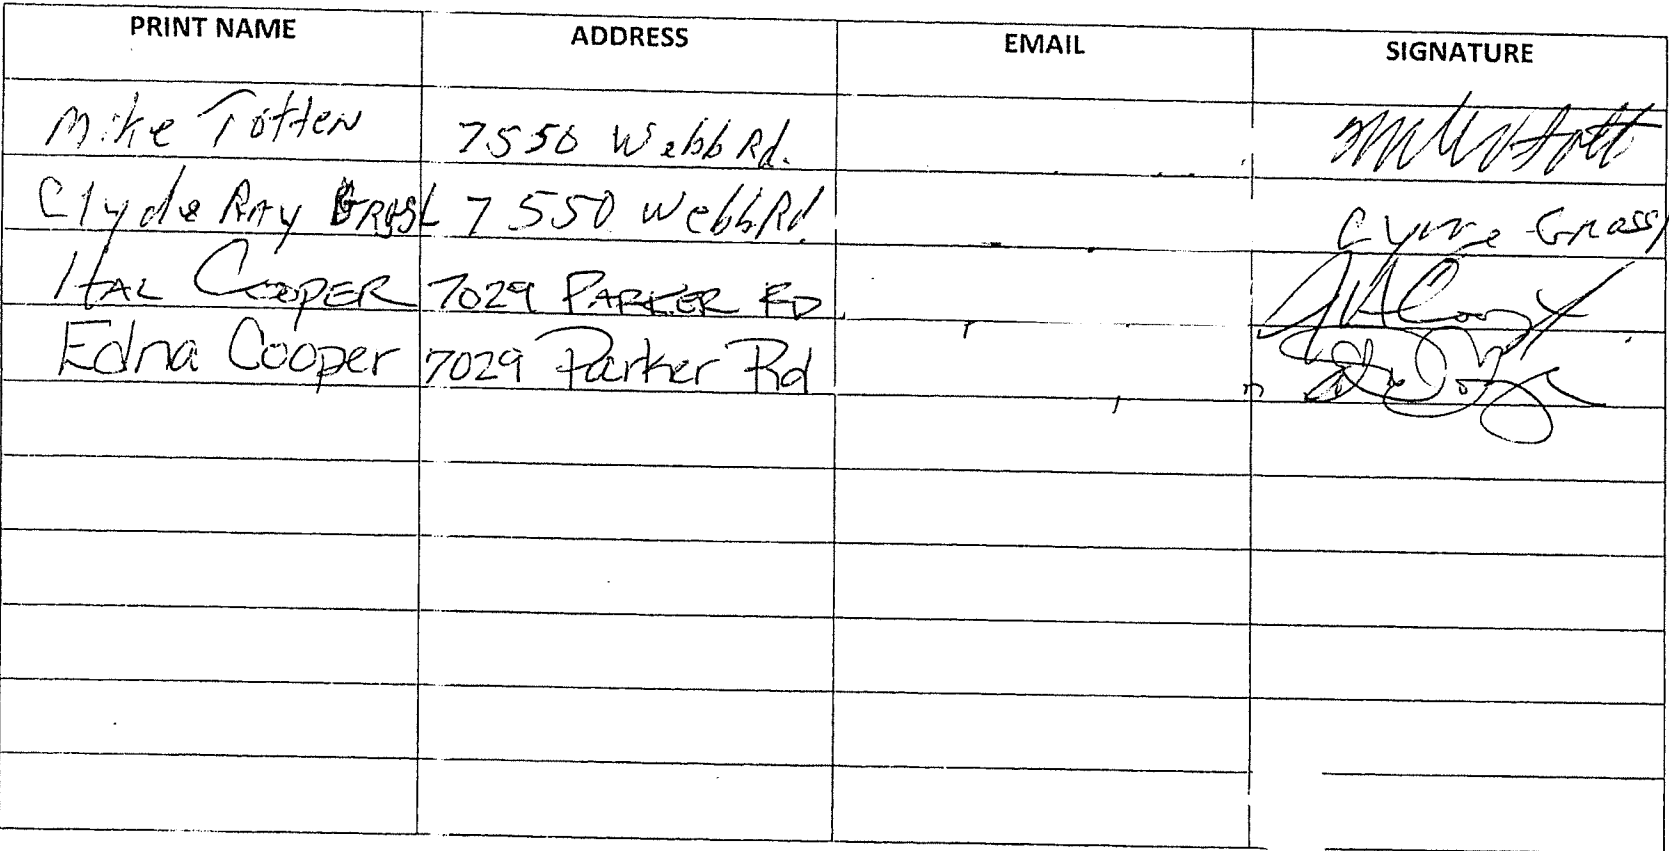 PRINT NAME ADDRESS EMAIL SIGNATURE
Mike Totten 7550 Webb Rd.
Clyde Ray 7550 Webb Rd Grass
HAL COOPER 7029 PARKER RD
Edna Cooper 7029 Parker Rd